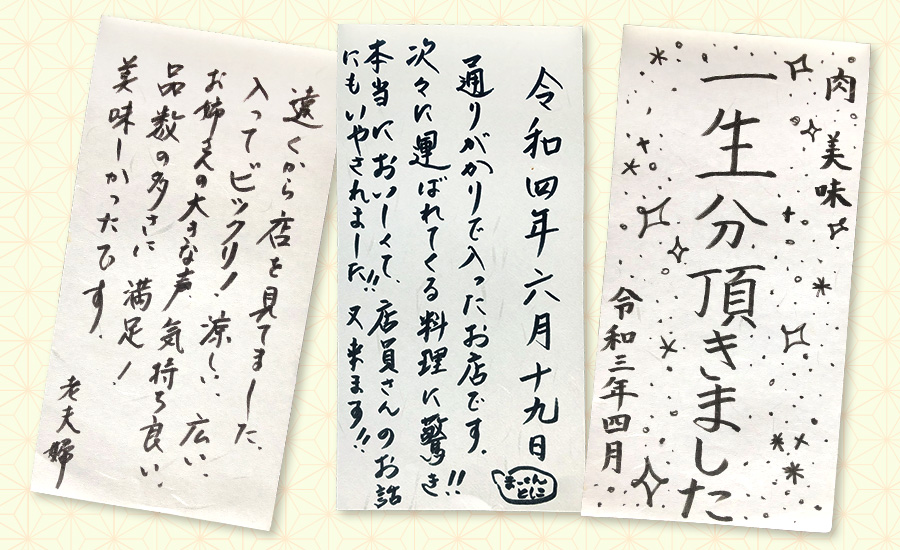 遠くから店を見てました、
入ってビックリ!涼しい、広い、
お姉さんの大きな声、気持ち良い、
品数の多さに満足!
美味しかったです。
老夫婦
令和四年六月十九日
通りがかりで入ったお店です。
次々に運ばれてくる料理に驚き!!
本当においしくて、店員さんのお話
にもいやされました!!又来ます!!
肉 美味
一生分頂きました
令和三年四月